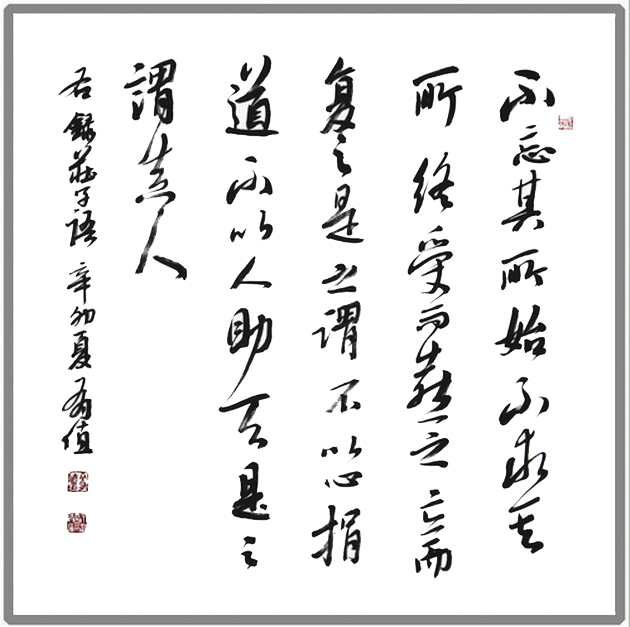 不忘其所始不求其
所終受而喜之忘而
复之是之謂不以心捐
道不以人助天是之
謂真人
右錄莊子語 辛卯夏 值